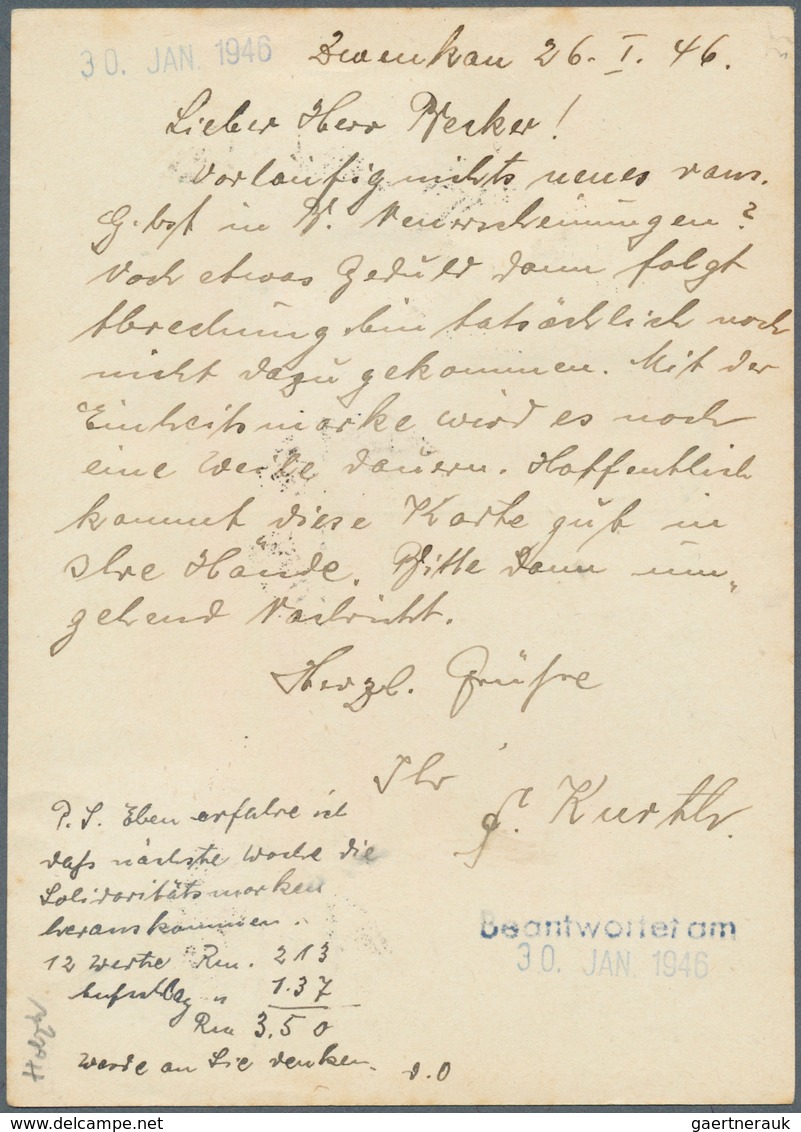 30. JAN. 1946
Zwenkau 26. I. 46.
Lieber Herr Becker!
Vorläufig nichts neues raus.
Gibst in B. Neuerscheinungen?
Noch etwas Geduld dann folgt
Abrechnung bin tatsächlich noch
nicht dazu gekommen. Mit der
Einheitsmarke wird es noch
eine Weile dauern. Hoffentlich
kommt diese Karte gut in
Ihre Hände. Bitte dann um-
gehend Nachricht.
Herzl. Grüße
Ihr
Kurth.
P.S. Eben erfahre ich
daß nächste Woche die
Solidaritätsmarken
herauskommen.
12 Werte Rm. 213
Aufschlag " 1.37
Rm 3.50
werde an Sie denken.
d.O
Beantwortet am
30. JAN. 1946
gaertnerauk